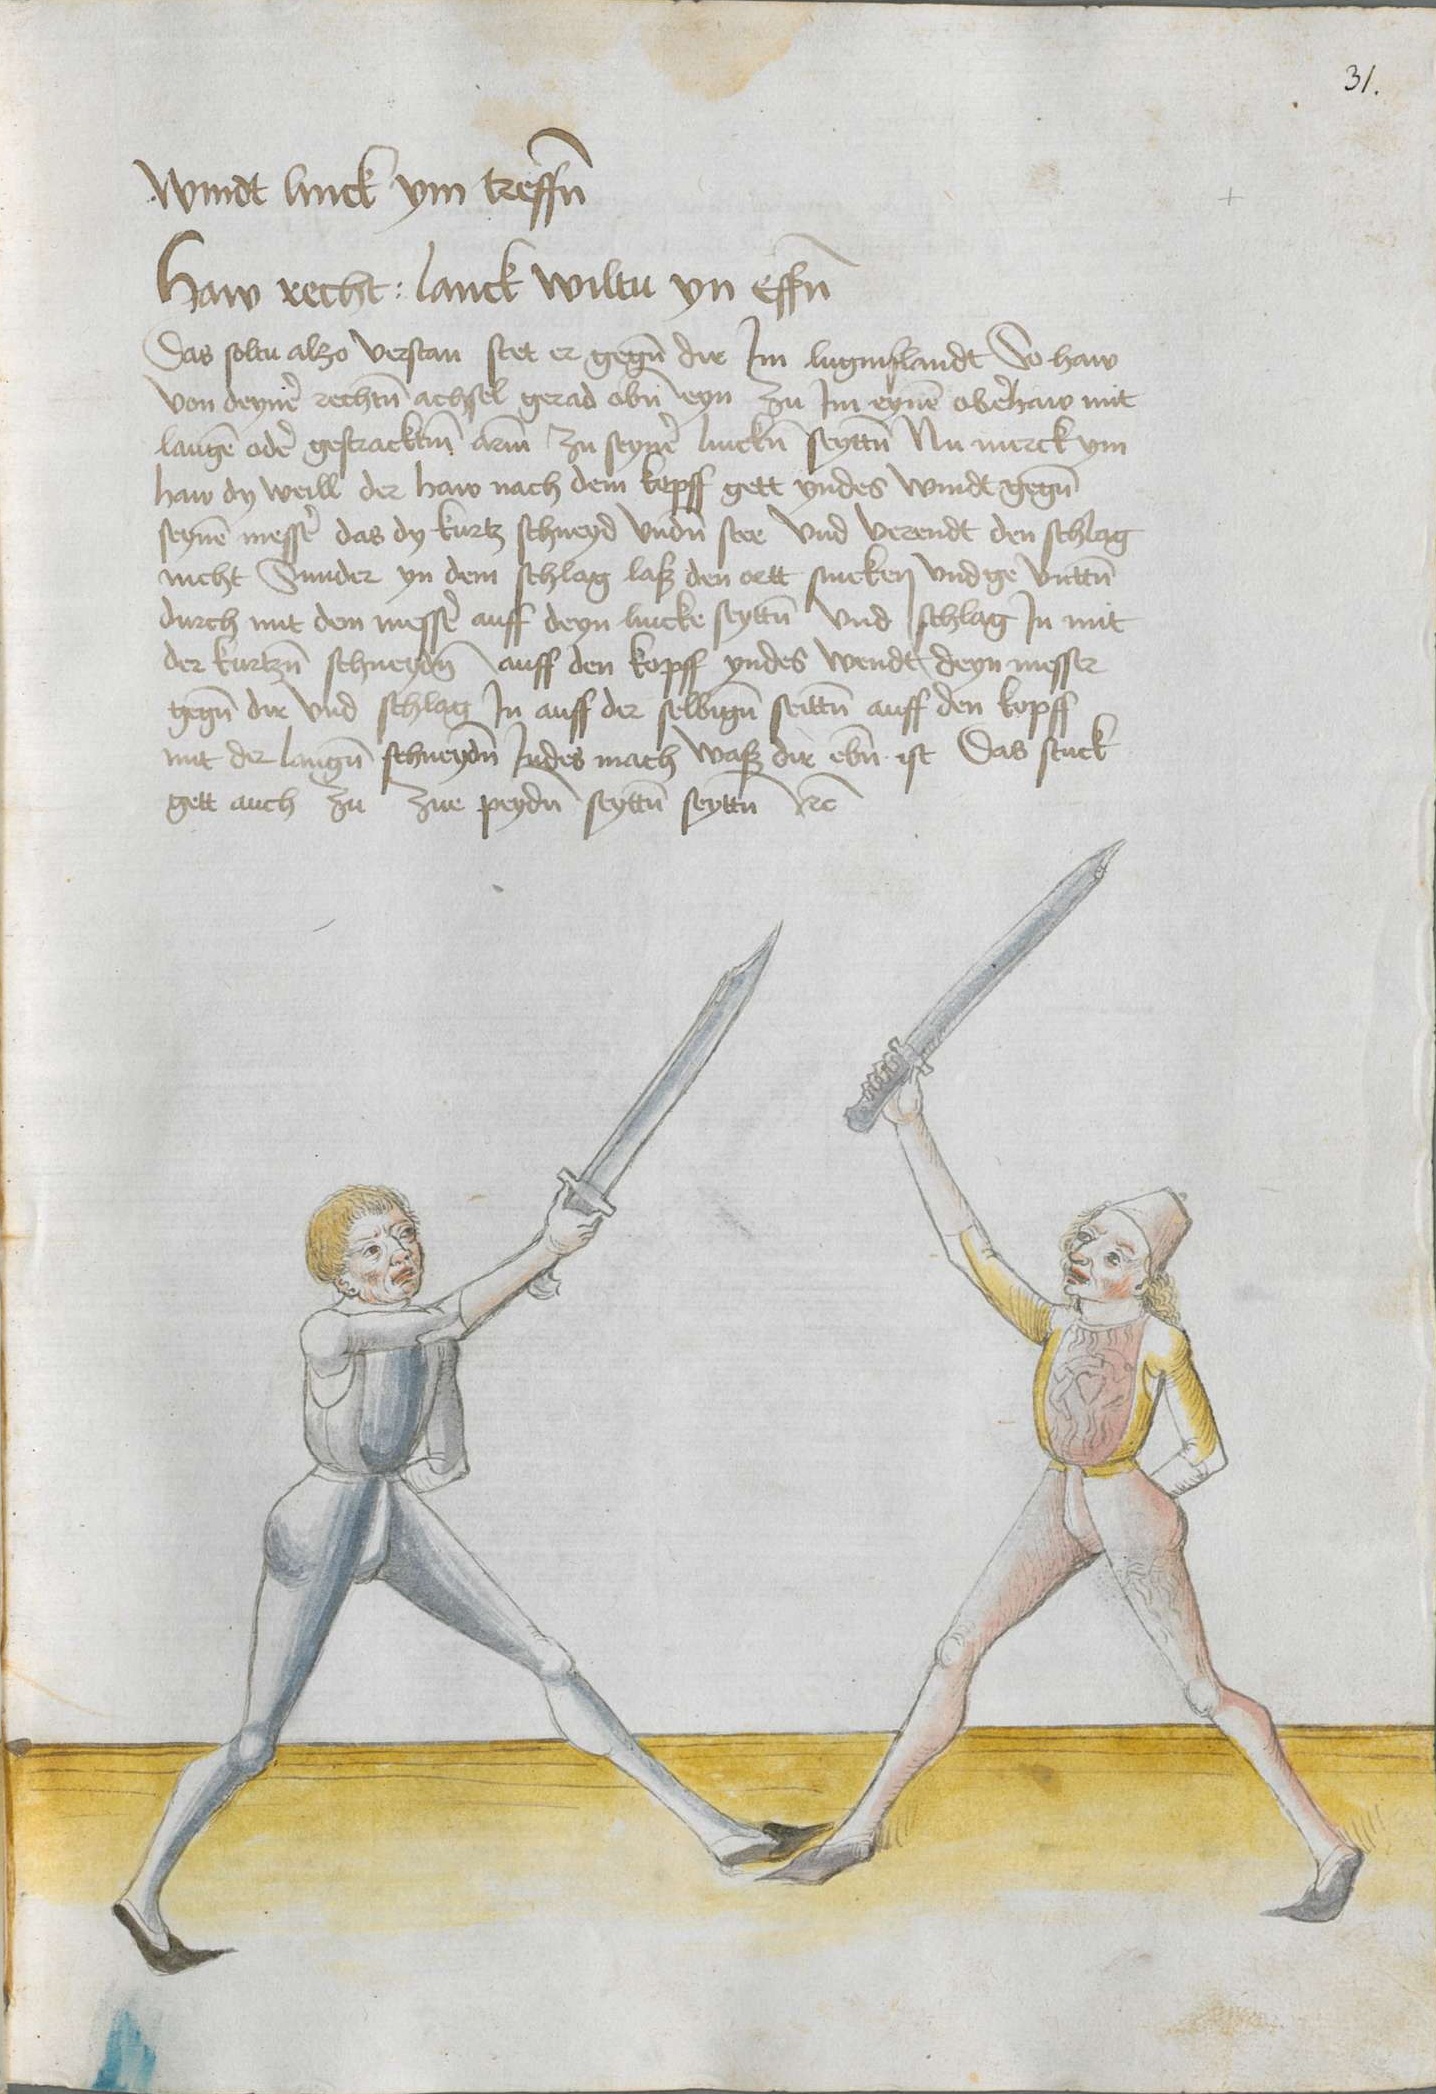 31.
Windt linck ym treffn̄
Haw recht: lanck wiltu yn effn̄
Das soltu alzo verstan stet er gegn̄ dir Im luginslandt So haw
von deyne᷑ rechtn̄ achsel gerad obn̄ eyn zu Im eyne᷑ obe᷑haw mit
lange᷑ ode᷑ gestracktm̄ arm zu seyne᷑ linckn̄ seyttn̄ Nu merck ym
haw dy weill der haw nach dem kopff gett yndes windt gegn̄
seyne᷑ messe᷑ das dy kurtz schneyd vndn̄ stee vnd verendt den schlag
nicht Sunder yn dem schlag laß den ortt sincken vnd ge vnttn̄
durch mit dem messe᷑ auff deyn lincke seyttn̄ vnd schlag In mit
der kurtzn̄ schneydn̄ auff den kopff yndes wendt deyn messer
gegn̄ dir vnd schlag In auff der selbign̄ seittn̄ auff den kopff
mit der langn̄ schneydn̄ Indes mach waß dir ebn̄ ist Das stuck
gett auch zu zue peydn̄ seyttn̄ seyttn̄ ꝛc